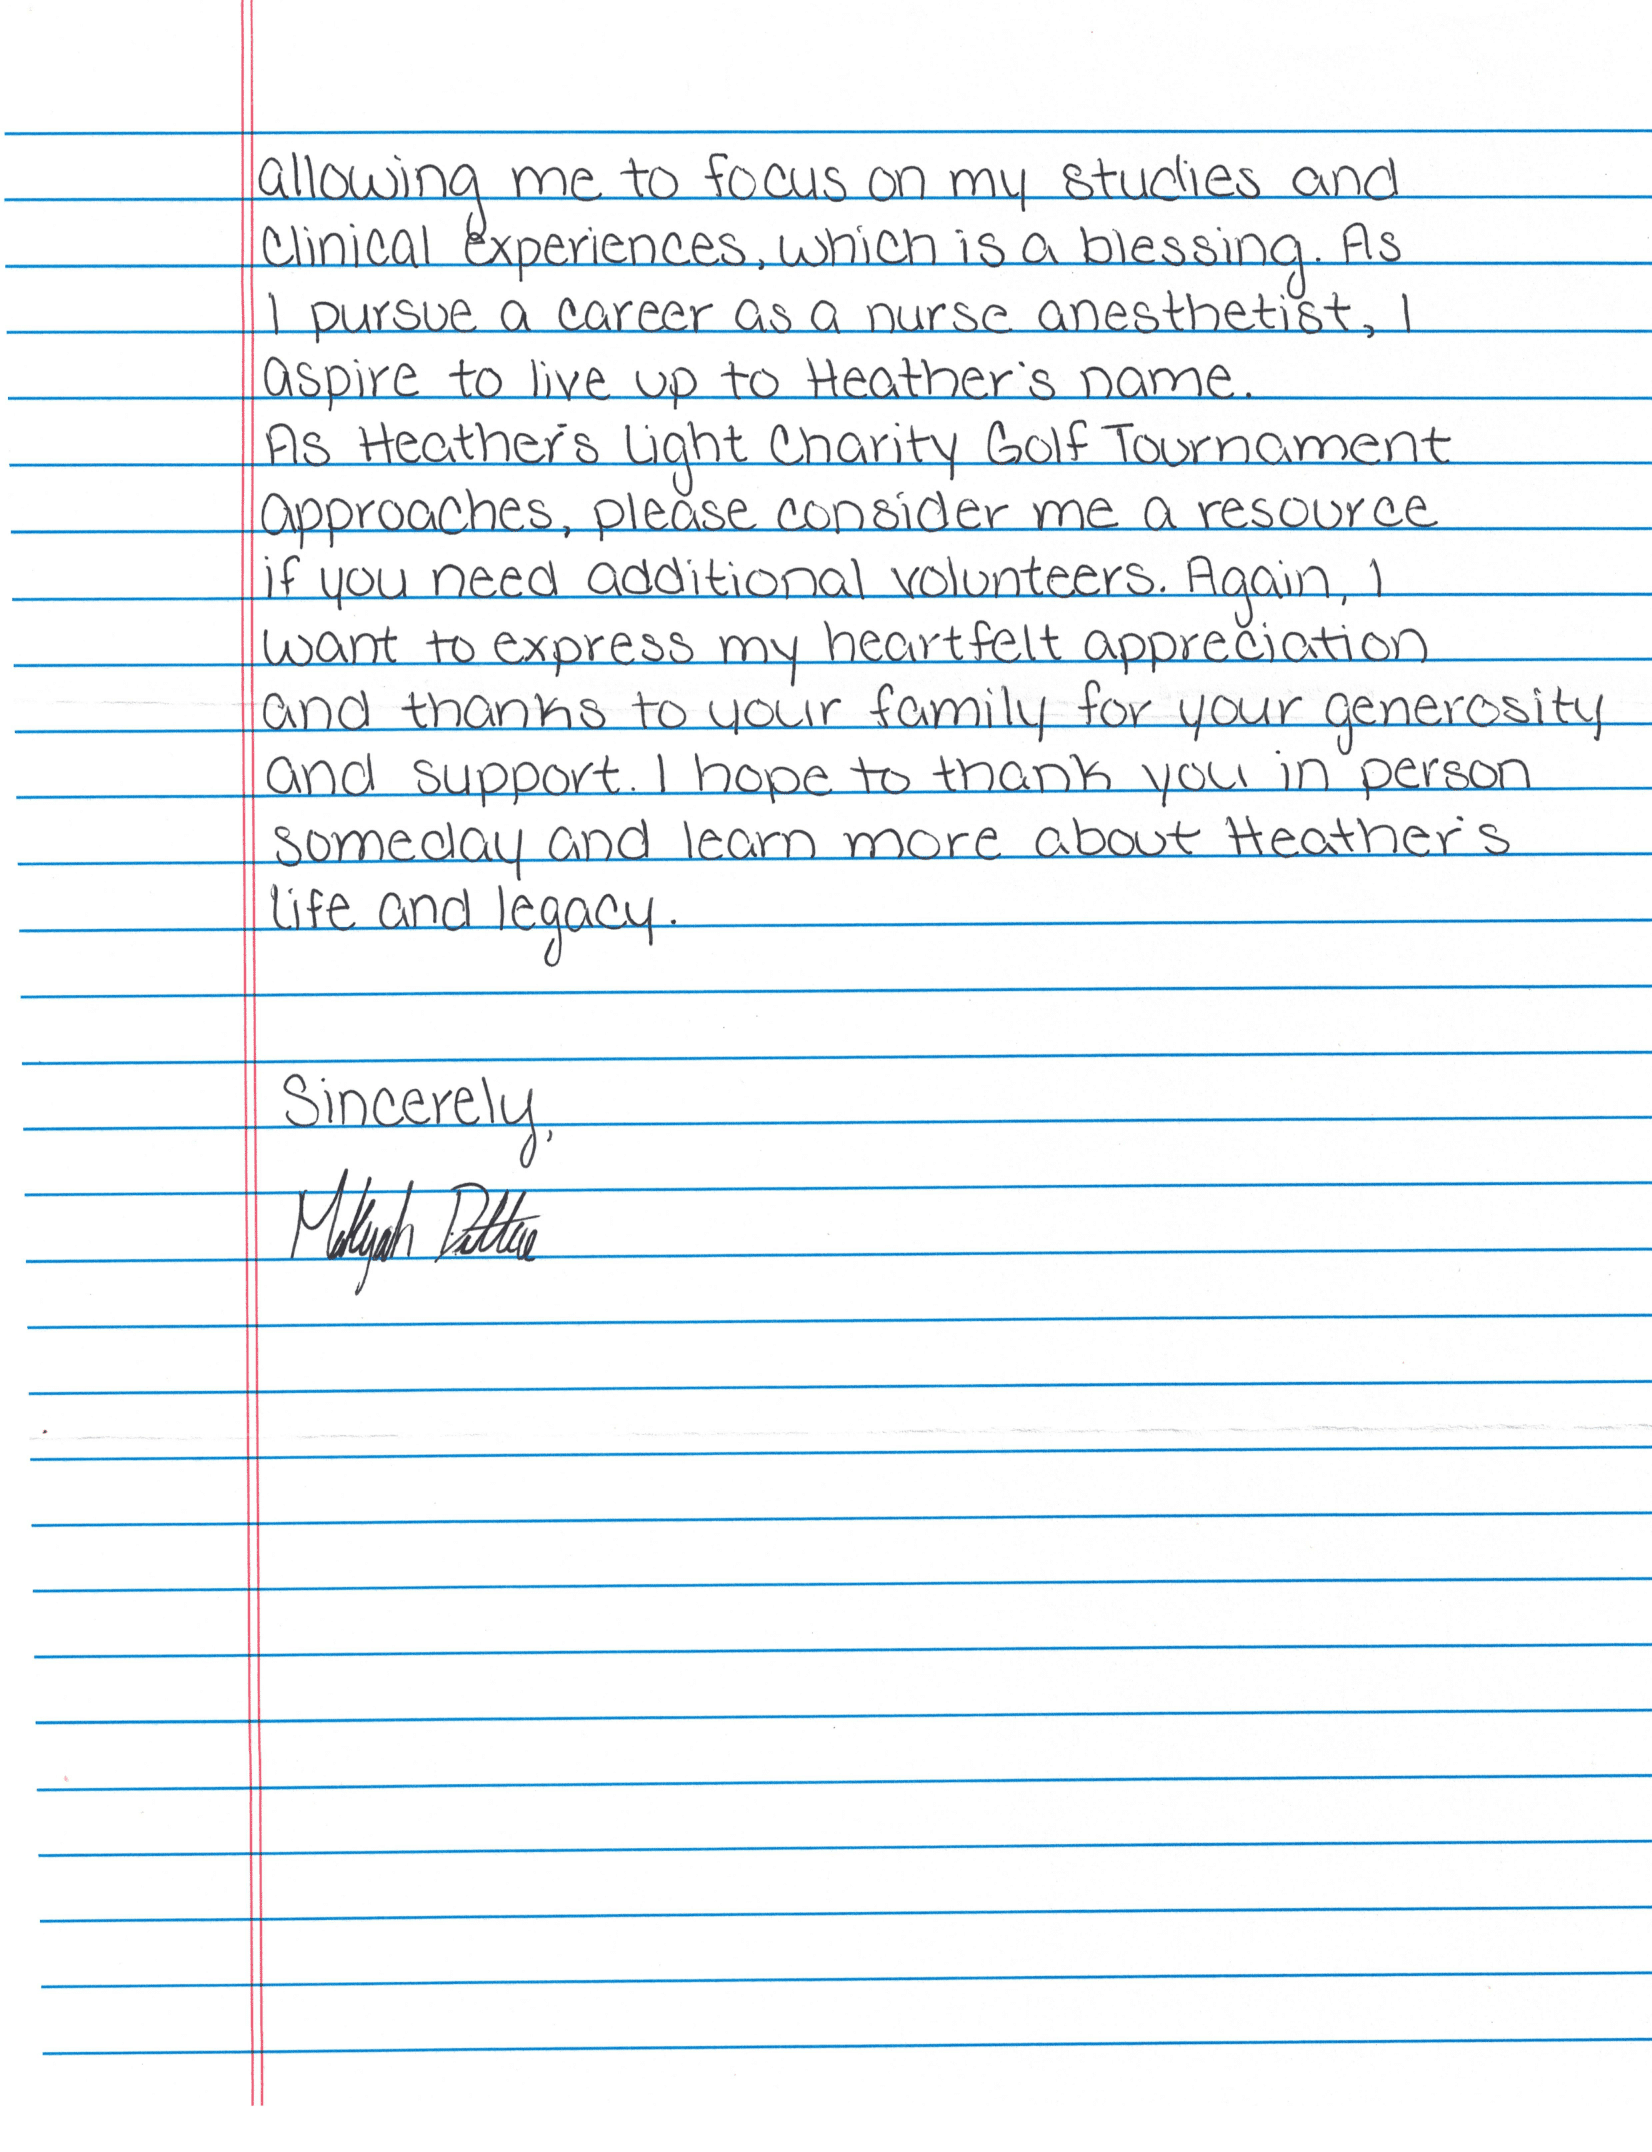 allowing me to focus on my studies and
clinical experiences, which is a blessing. As
I pursue a career as a nurse anesthetist, I
aspire to live up to Heather's name.
As Heather's Light Charity Golf Tournament
approaches, please consider me a resource
if you need additional volunteers. Again, I
want to express my heartfelt appreciation
and thanks to your family for your generosity
and support. I hope to thank you in person
someday and learn more about Heather's
life and legacy.
Sincerely,